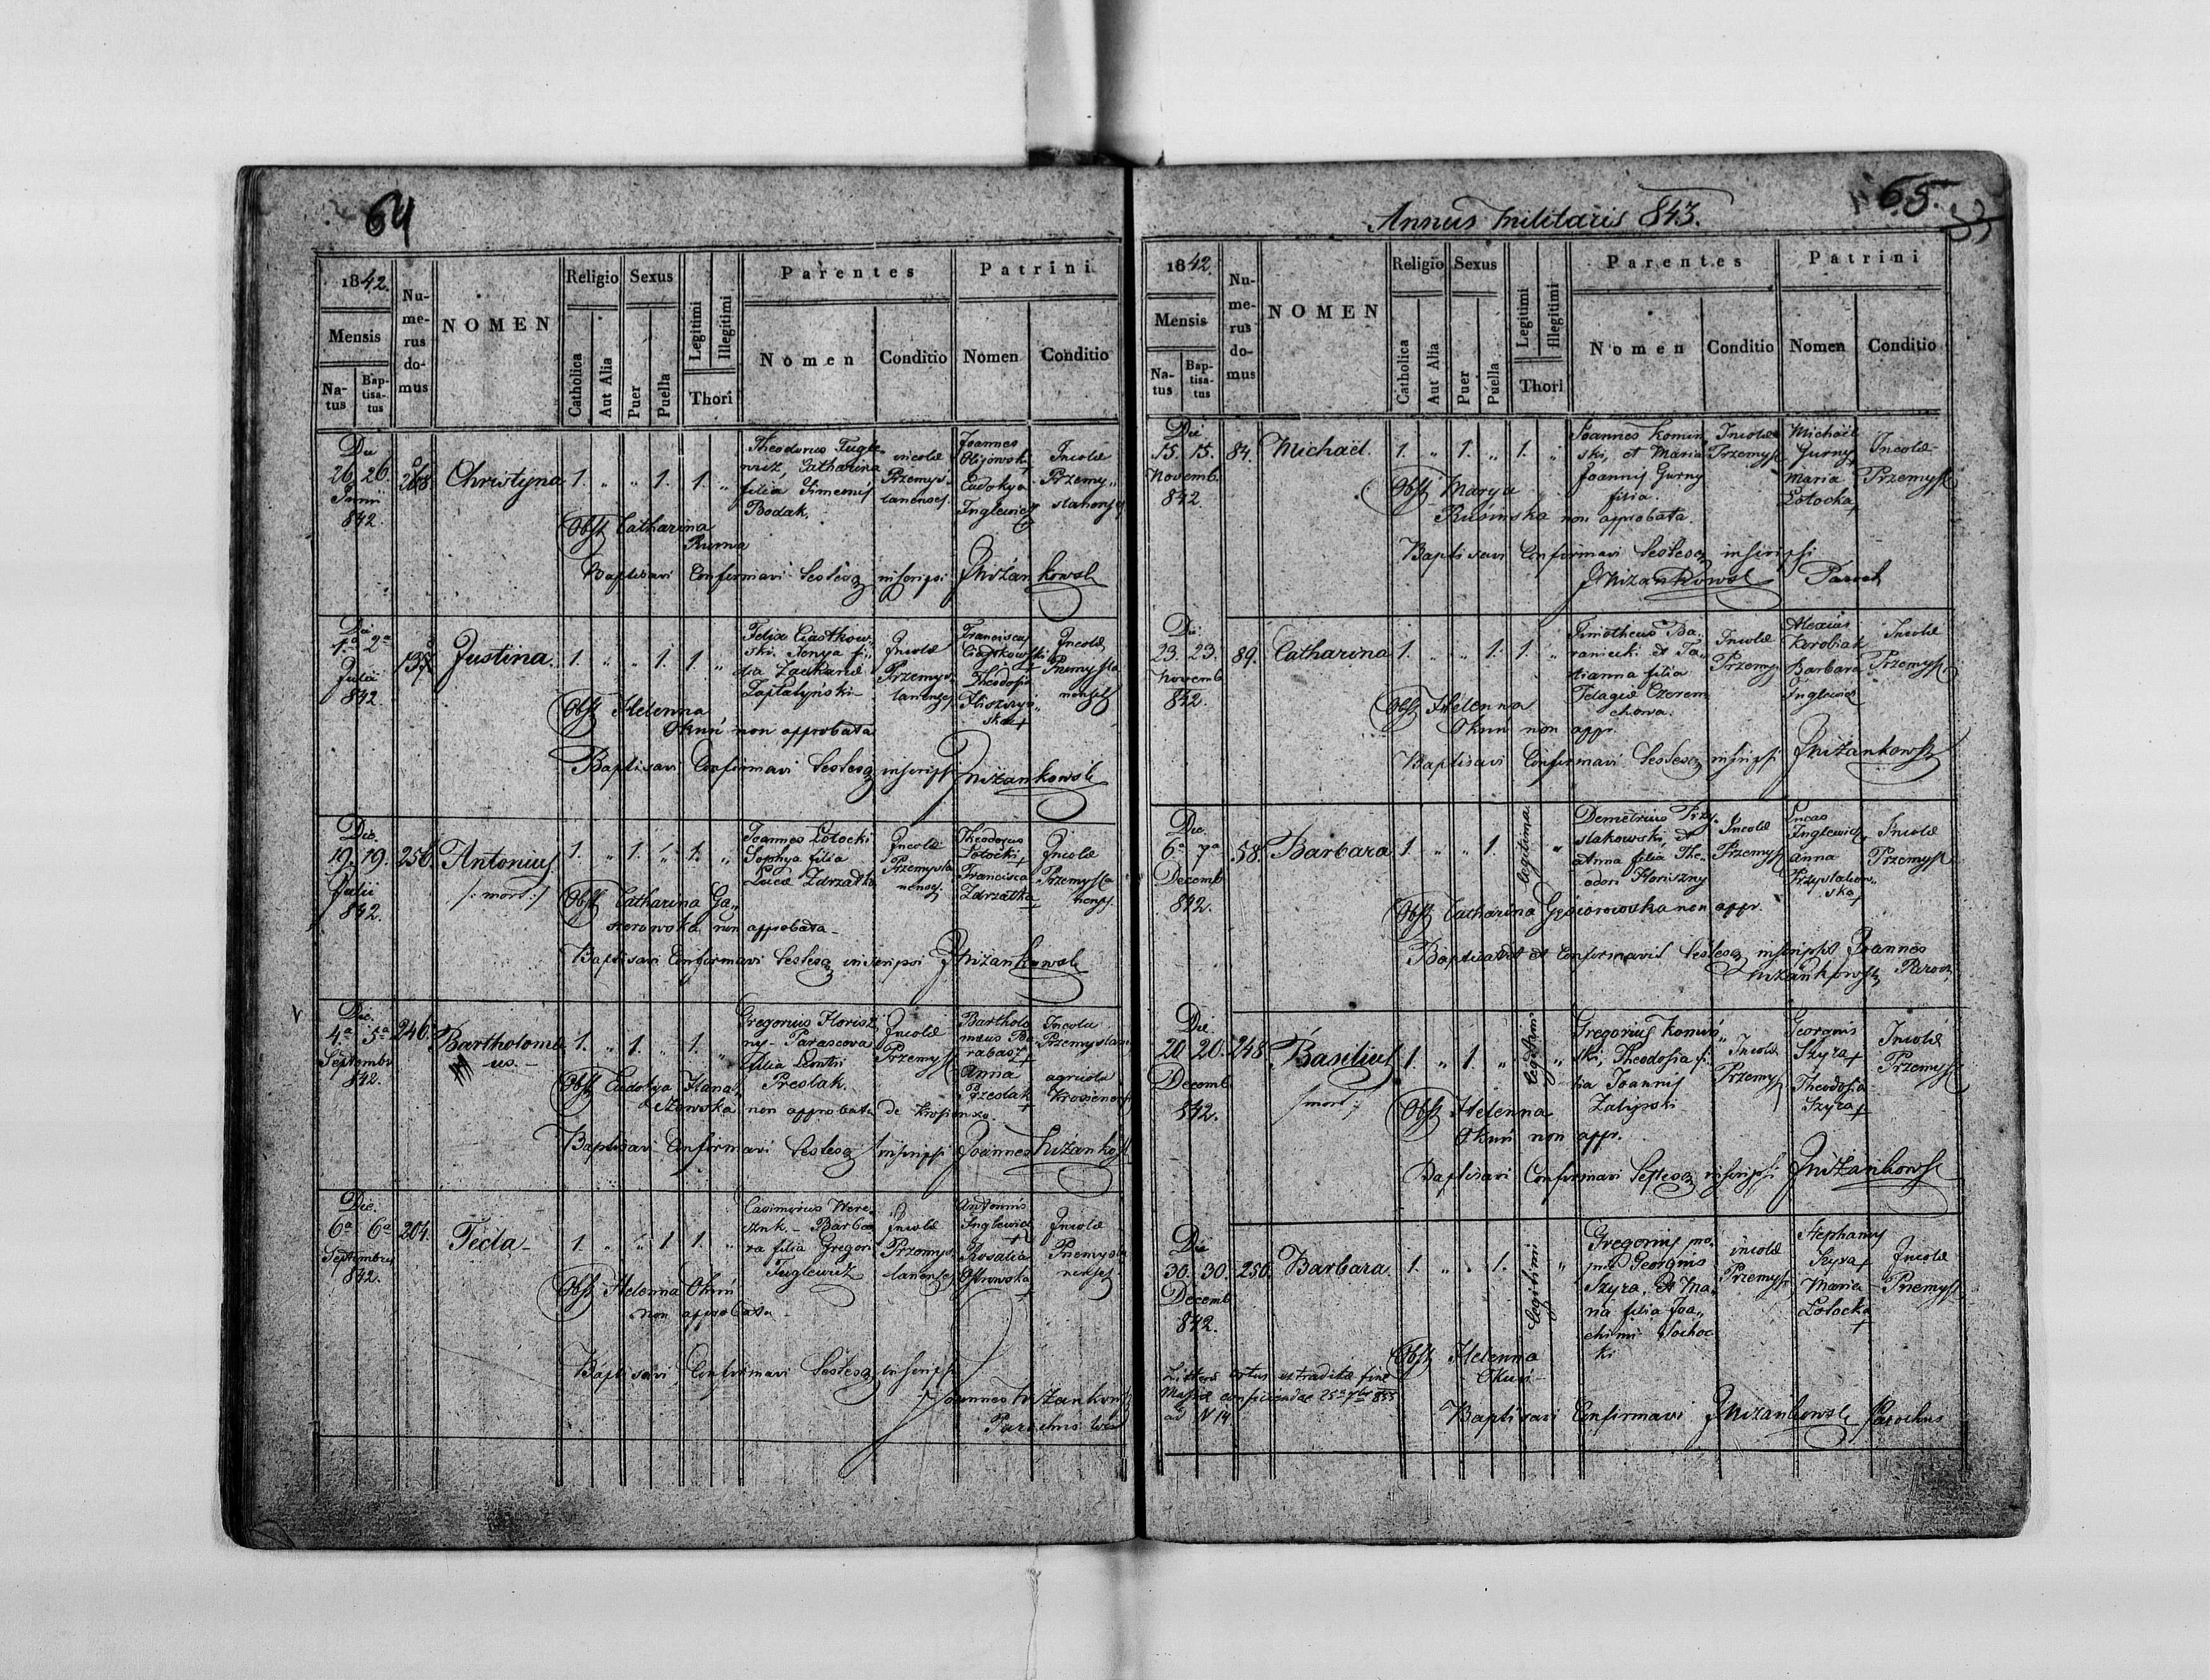 64
1842.
Mensis
Na-
tus
Bap-
tisa-
tus
Nu-
me-
rus
do-
mus
NOMEN
Religio
Catholica
Aut Alia
Sexus
Puer
Puella
Legitimi
Illegitimi
Thori
Parentes
Nomen
Conditio
Patrini
Nomen
Conditio
Die
26. 26.
Junii
842.
268
Christyna
1. „ „ 1. 1. „
Theodorus Ingle
wicz, Catharina
filia Simeonis
Bodak.
incolæ
Przemys
lanenses
Joannes
Olijowski +
Eudokya
Inglewicz +
Incolæ
Przemy„
slanenses
Obst Catharina
Ruma
Baptisavi Confirmavi Testesq inscripsi JKniżankowski
Die
1ma 2a
Julii
842.
137
Justina.
1. „ „ 1. 1. „
Felix Ciastkow„
ski. Xenya fi„
lia Zachariæ
Zaplatyński
Incolæ
Przemys
lanenses
Franciscus
Ciastkowski +
Theodosia
Floszczy„
ska +
Incolæ
Przemysla
nenses
Obst Helenna
Okuń non approbata
Baptisavi Confirmavi Testesq inscripsi JKniżankowski
Die.
19. 19.
Julii
842.
256.
Antonius
/: mort :/
1. „ 1. „ 1. „
Joannes Łotocki
Sophya filia
Lucæ Zdrzałka
Incolæ
Przemysla
nenses
Theodorus
Łotocki +
Francisca
Zdrzałka +
Incolæ
Przemysla
nenses.
Obst Catharina Gą„
siorowska non approbata
Baptisavi Confirmavi Testesq inscripsi JKniżankowski
Die.
4a 5a
Septembr
842.
246.
Bartholomæ
us.
1. „ 1. „ 1. „
Gregorius Florisz
ny - Parasceva
filia Leontii
Preslak
Incolæ
Przemysl
Bartholo
mæus Ba
rabasz +
Anna
Przeslak +
Incola
Przemyslan
agricola
Krosienens
Obst Eudokya Hana„
czowska non approbata de Krosienko.
Baptisavi Confirmavi Testesq inscripsi Joannes Kniżankows
Die.
6a 6a
Septembris
842.
204.
Tecla
1. „ „ 1 1. „
Casimirus Were
Barba
ra filia Gregori
Inglewicz
Incolæ
Przemys
lanenses
Antonius
Inglewicz
Rosalia
Ostrowska +
Incolæ
Przemysla
nenses
Obst Helenna Okuń
non approbata
Baptisavi Confirmavi Testesq inscripsi
Joannes Kniżankows
Parochus
65.
33
Annus militaris 843.
1842.
Mensis
Na-
tus
Bap-
tisa-
tus
Nu-
me-
rus
do-
mus
NOMEN
Religio
Catholica
Aut Alia
Sexus
Puer
Puella
Legitimi
Illegitimi
Thori
Parentes
Nomen
Conditio
Patrini
Nomen
Conditio
Die
15. 15.
Novemb.
842.
84.
Michaël.
1. „ 1. „ 1. „
Joannes Komin
ski, et Maria
Joannis Gurny
filia.
Incolæ
Przemysl
Michaël
Gurny +
Maria
Łotocka +
Incolæ
Przemysl
Obst Marya
Rusińska non approbata.
Baptisavi Confirmavi Testesq inscripsi
JKniżankowski Paroch
Die
23. 23.
Novemb
842.
89.
Catharina
1. „ „ 1. 1. „
Timotheus Ba„
raniecki et Ta„
tianna filia
Pelagiæ Czerem
chowa.
Incolæ
Przemysl
Alexius
Korobiak
Barbara
Inglewicz
Incolæ
Przemysl
Obst Helenna
Okuń non appr.
Baptisavi Confirmavi Testesq inscripsi JKniżankowski
Die.
6a 7a
Decemb
842.
58.
Barbara
1. „ „ 1. legitima. „
Demetrius Przy„
stakowski, et
Anna filia The„
odori Floriszny
Incolæ
Przemysl
Lucas
Inglewicz
Anna
Przystakow„
ska +
Incolæ
Przemysl
Obst Catharina Gąsiorowska non appr.
Baptisavit et Confirmavit Testesq inscripsit Joannes
Kniżankowski Paroch
Die
20 20.
Decemb.
842.
248
Basilius
/mort :/
1. „ 1. „ legitimi „
Gregorius Komiń„
ski, Theodosia fi„
lia Joannis
Zalipski
Incolæ
Przemysl
Georgius
Szyra +
Theodosia
Szyra +
Incolæ
Przemysl
Obst Helenna
Okuń non appr.
Baptisavi Confirmavi Testesq inscripsi JKniżankowski
Die
30. 30.
Decemb
842.
250
Barbara
1. „ „ 1. legitimi „
Gregorius
Georgius
Szyra, et Ma„
ria filia Joa„
chimi Sochoc
ki
incolæ
Przemysl
Stephanus
Szyra +
Maria
Łotocka +
Incolæ
Przemysl
Obst Helenna
Okuń
Litteræ ortus extraditæ fine
conficiendæ 25a 855
ad N 14
Baptisavi Confirmavi JKniżankowski Parochus